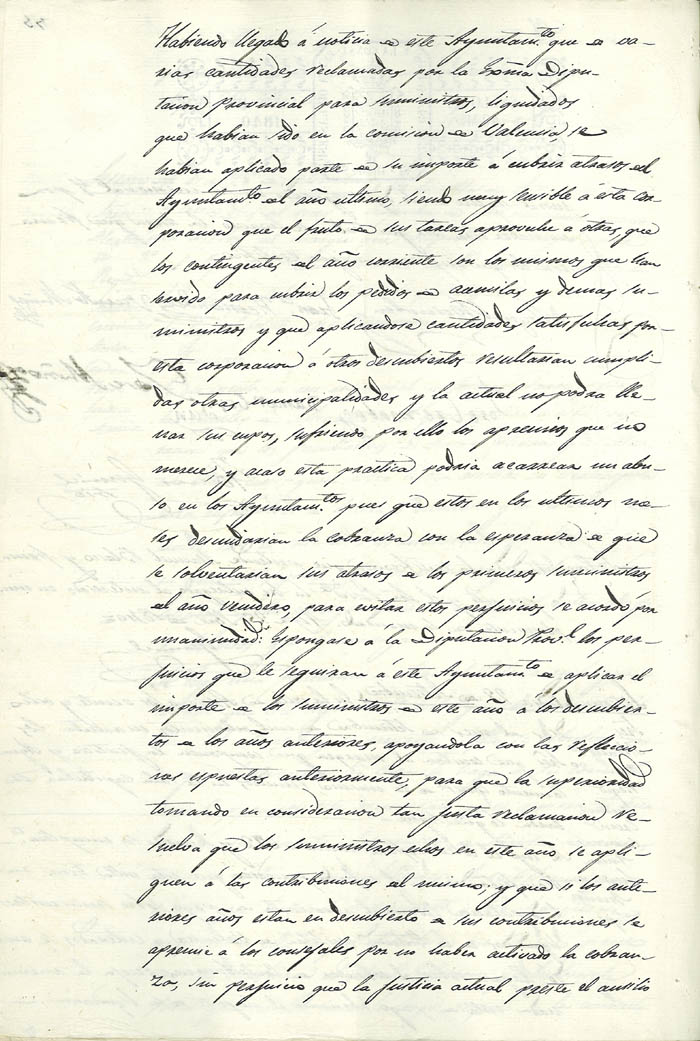 Habiendo llegado á noticia de este Ayuntam.to que de va-
rias cantidades reclamadas por la Exma Dipu-
tacion Provincial para suministros, liquidados
que habian sido en la comision de Valencia, se
habian aplicado parte de su importe á cubrir atrasos del
Ayuntam.to del año ultimo, siendo muy sensible á esta cor-
poracion que el fruto de sus tareas aproveche á otras, que
los contingentes del año corriente son los mismos que han
servido para cubrir los pedidos de acemilas y demas su-
ministros y que aplicandose cantidades satisfechas por
esta corporacion á otros descubiertos resultarian cumpli-
das otras municipalidades y la actual no podra lle-
nar sus cupos, sufriendo por ello los apremios que no
merece, y acaso esta practica podria acarrear un abu-
so en los Ayuntam.tos pues que estos en los ultimos me-
ses descuidarian la cobranza con la esperanza de que
se solventarian sus atrasos de los primeros suministros
del año venidero, para evitar estos perjuicios se acordó por
unanimidad: Espongase á la Diputacion Prov.l los per-
juicios que le seguiran á este Ayuntam.to de aplicar el
importe de los suministros de este año á los descubier-
tos de los años anteriores, apoyandola con las reflecio-
nes espuestas anteriormente, para que la superioridad
tomando en consideracion tan justa reclamacion re-
suelva que los suministros echos en este año se apli-
quen á las contribuciones del mismo; y que si los ante-
riores años estan en descubierto de sus contribuciones se
apremie á los consejales por no haber activado la cobran-
za, sin perjuicio que la Justicia actual preste el ausilio